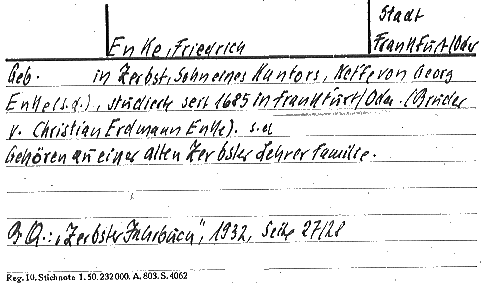 Stadt
Enke, Friedrich Frankfurt/Oder
Geb. in Zerbst, Sohn eines Kantors, Neffe von Georg
Enke (s.d.), studierte seit 1685 in Frankfurt/Oder. (Bruder
v. Christian Erdmann Enke). s.d
Gehören zu einer alten Zerbster Lehrerfamilie.
B.Q.: „Zerbster Jahrbuch", 1932, Seite 27/28
Reg. 10. Stichnote 1. 50. 232 000. A. 803. S. 4062